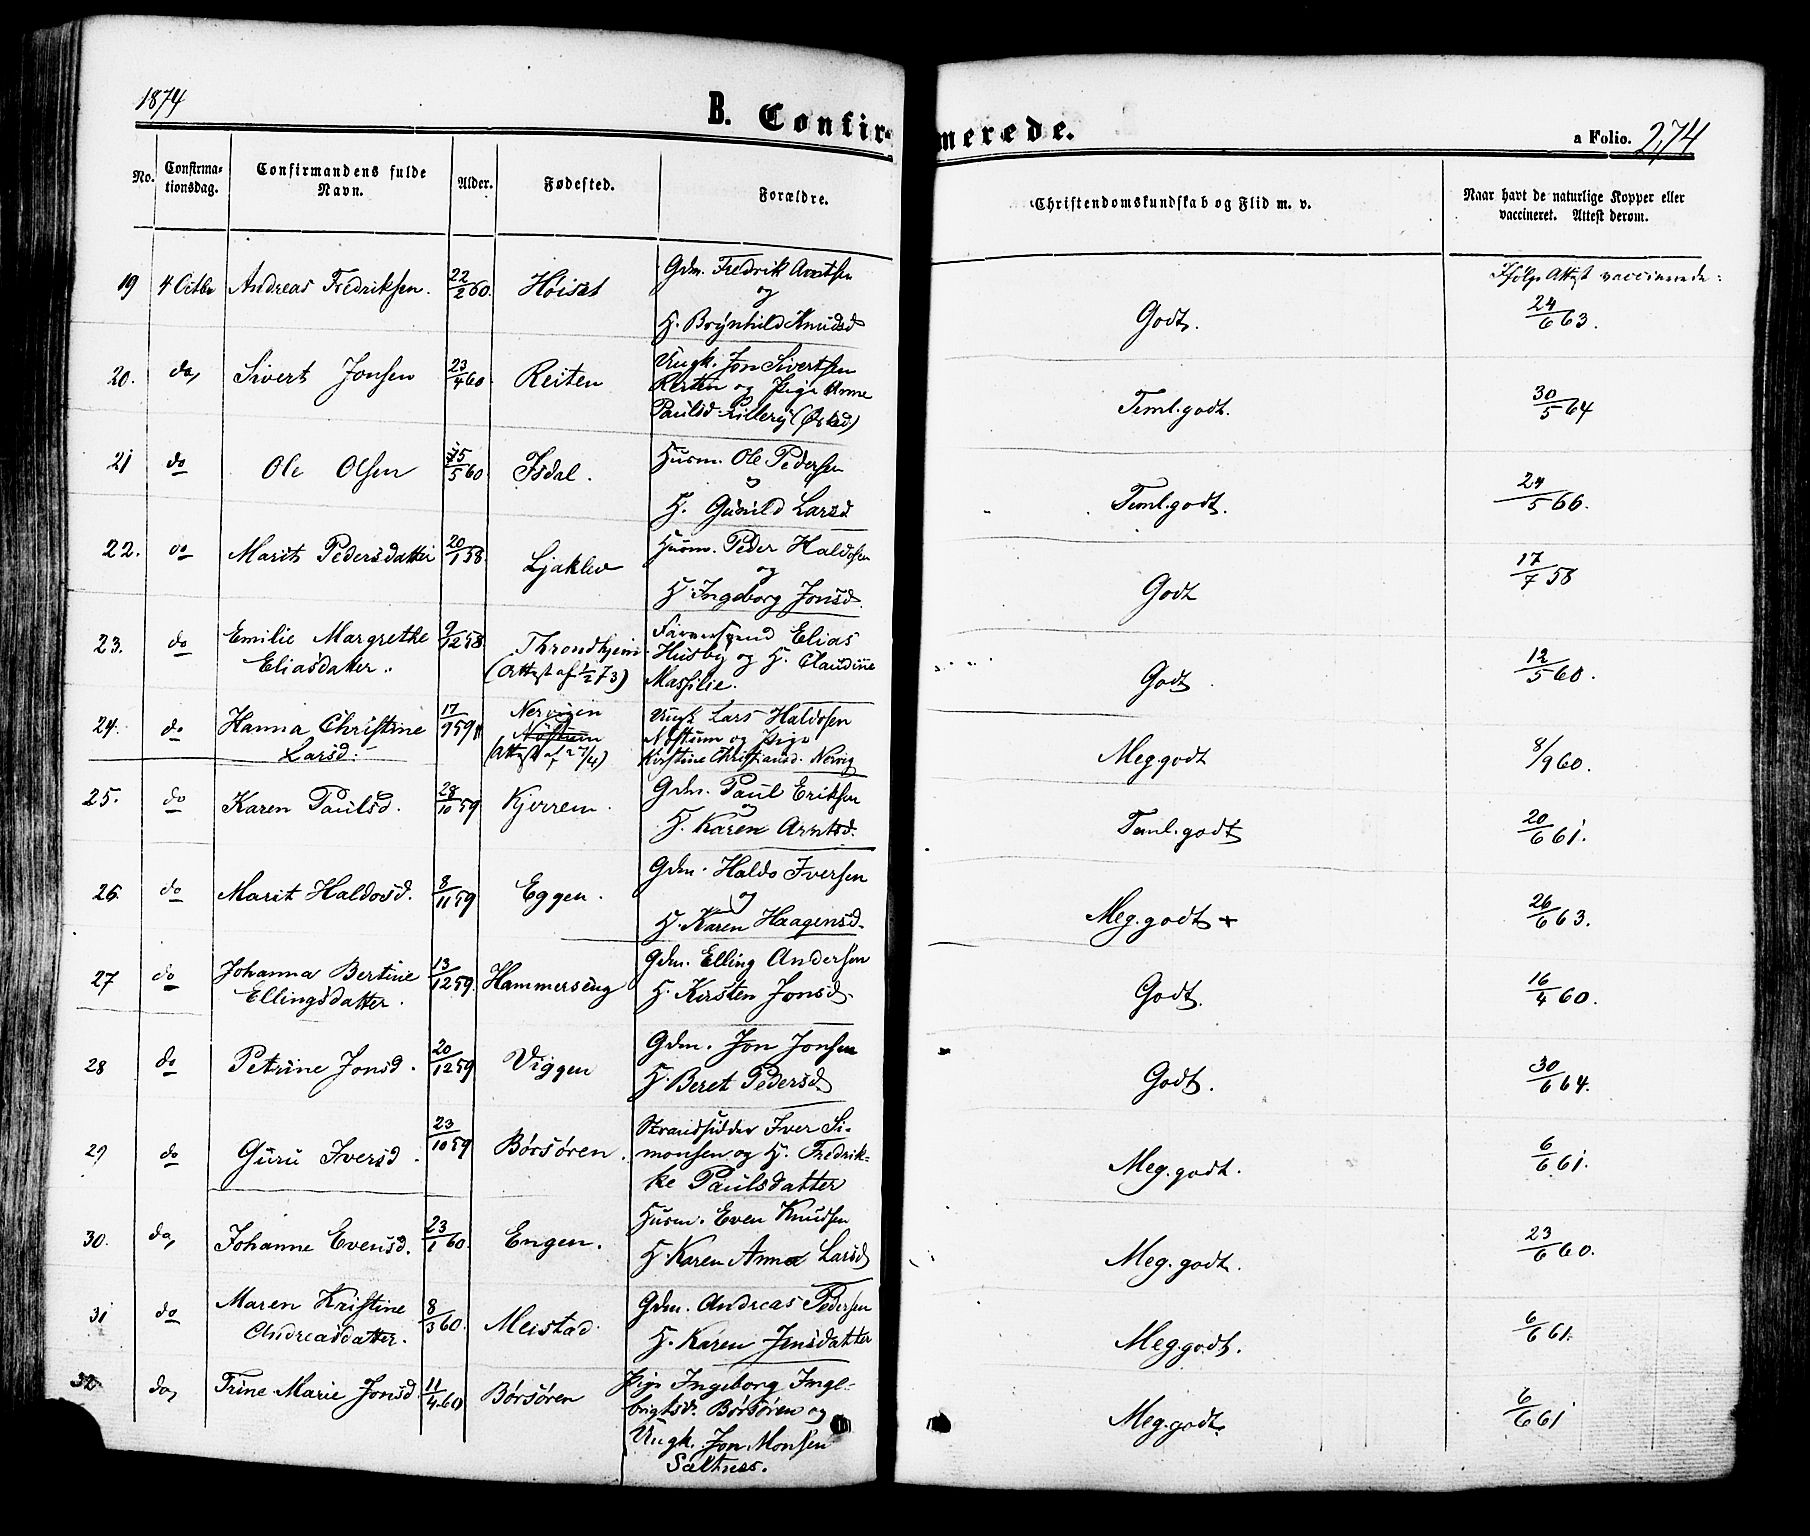 1874
B. Confirmerede.
a Folio. 274
No. Confirmationsdag. Confirmandens fulde Navn. Alder. Fødested. Forældre. Christendomskundskab og Flid m. v. Naar havt de naturlige Kopper eller vaccineret. Attest derom.
Ifølge Attest vaccinerede:
19 4 Octbr Andreas Fredriksen. 22/2 60. Høiset Gdm. Fredrik Arntsen og H. Brynhild Knudsd Godt. 24/6 63.
20. do, Sivert Jonsen 23/4 60 Reiten Ungk. Jon Sivertsen Reiten og Pige Anne Paulsd Lillery Teml. godt. 30/5 64
21 do Ole Olsen 15/5 60 Isdal. Husm. Ole Pedersen og H. Gunild Larsd Teml. godt. 24/5 66.
22. do Marit Pedersdatter 20/1 58. Ljaklev Husm. Peder Haldosen og H. Ingeborg Jonsd. Godt 17/7 58
23. do Emilie Margrethe Eliasdatter. 9/12 58. Throndhjem (Attest af 1/2 73) Farversvend Elias Husby og H. Claudine Massilie. Godt 12/5 60.
24. do Hanna Christine Larsd. 17/9 59 Nervigen (Attest af 27/4) Ungk Lars Haldosen Nostum og Pige Kirstine Christiansd. Nervig Meg. godt 8/9 60.
25. do Karen Paulsd. 28/10 59 Kjerrem. Gdm. Paul Eriksen og H. Karen Arntsd. Teml. godt 20/6 61.
26. do Marit Haldosd. 8/11 59 Eggen. Gdm. Haldo Iversen og H. Karen Haagensd. Meg. godt + 26/6 63.
27 do Johanna Bertine Ellingsdatter. 13/12 59. Hammerseng Gdm. Elling Andersen H. Kirsten Jonsd. Godt. 16/4 60.
28 do Petrine Jonsd. 20/12 59 Viggen Gdm. Jon Jonsen H. Beret Pedersd. Godt. 30/6 64.
29 do Guru Iversd. 23/10 59 Børsøren. Strandsidder Iver Simonsen og H. Fredrikke Paulsdatter Meg. godt. 6/6 61.
30. do, Johanne Evensd. 23/1 60. Engen. Husm. Even Knudsen H. Karen Anna Larsd Meg. godt. 23/6 60.
31 do Maren Kristine Andreasdatter. 8/3 60. Meistad. Gdm. Andreas Pedersen H. Karen Jensdatter Meg. godt. 6/6 61.
32 do, Trine Marie Jonsd. 11/4 60 Børsøren Pige Ingeborg Ingebrigtsd. Børsøren og Ungk. Jon Monsen Saltnes. Meg. godt. 6/6 61